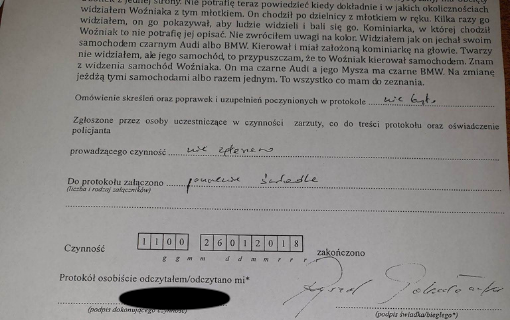 z jednej strony. Nie potrafię teraz powiedzieć kiedy dokładnie i w jakich okolicznościach
widziałem Woźniaka z tym młotkiem. On chodził po dzielnicy z młotkiem w ręku. Kilka razy go
widziałem, on go pokazywał, aby ludzie widzieli i bali się go. Kominiarka, w której chodził
Woźniak to nie potrafię jej opisać. Nie zwróciłem uwagi na kolor. Widziałem jak on jechał swoim
samochodem czarnym Audi albo BMW. Kierował i miał założoną kominiarkę na głowie. Twarzy
nie widziałem, ale jego samochód, to przypuszczam, że to Woźniak kierował samochodem. Znam
z widzenia samochód Woźniaka. On ma czarne Audi a jego Mysza ma czarne BMW. Na zmianę
jeżdżą tymi samochodami albo razem jednym. To wszystko co mam do zeznania.
Omówienie skreśleń oraz poprawek i uzupełnień poczynionych w protokole nie było
Zgłoszone przez osoby uczestniczące w czynności zarzuty, co do treści protokołu oraz oświadczenie
policjanta
prowadzącego czynność nie zgłoszono
Do protokołu załączono pouczenie świadka
(liczba i rodzaj załączników)
Czynność 1100 26012018 zakończono
g g m m d d m m r r r r
Protokół osobiście odczytałem/odczytano mi*
(podpis dokonującego czynność)
(podpis świadka/biegłego*)